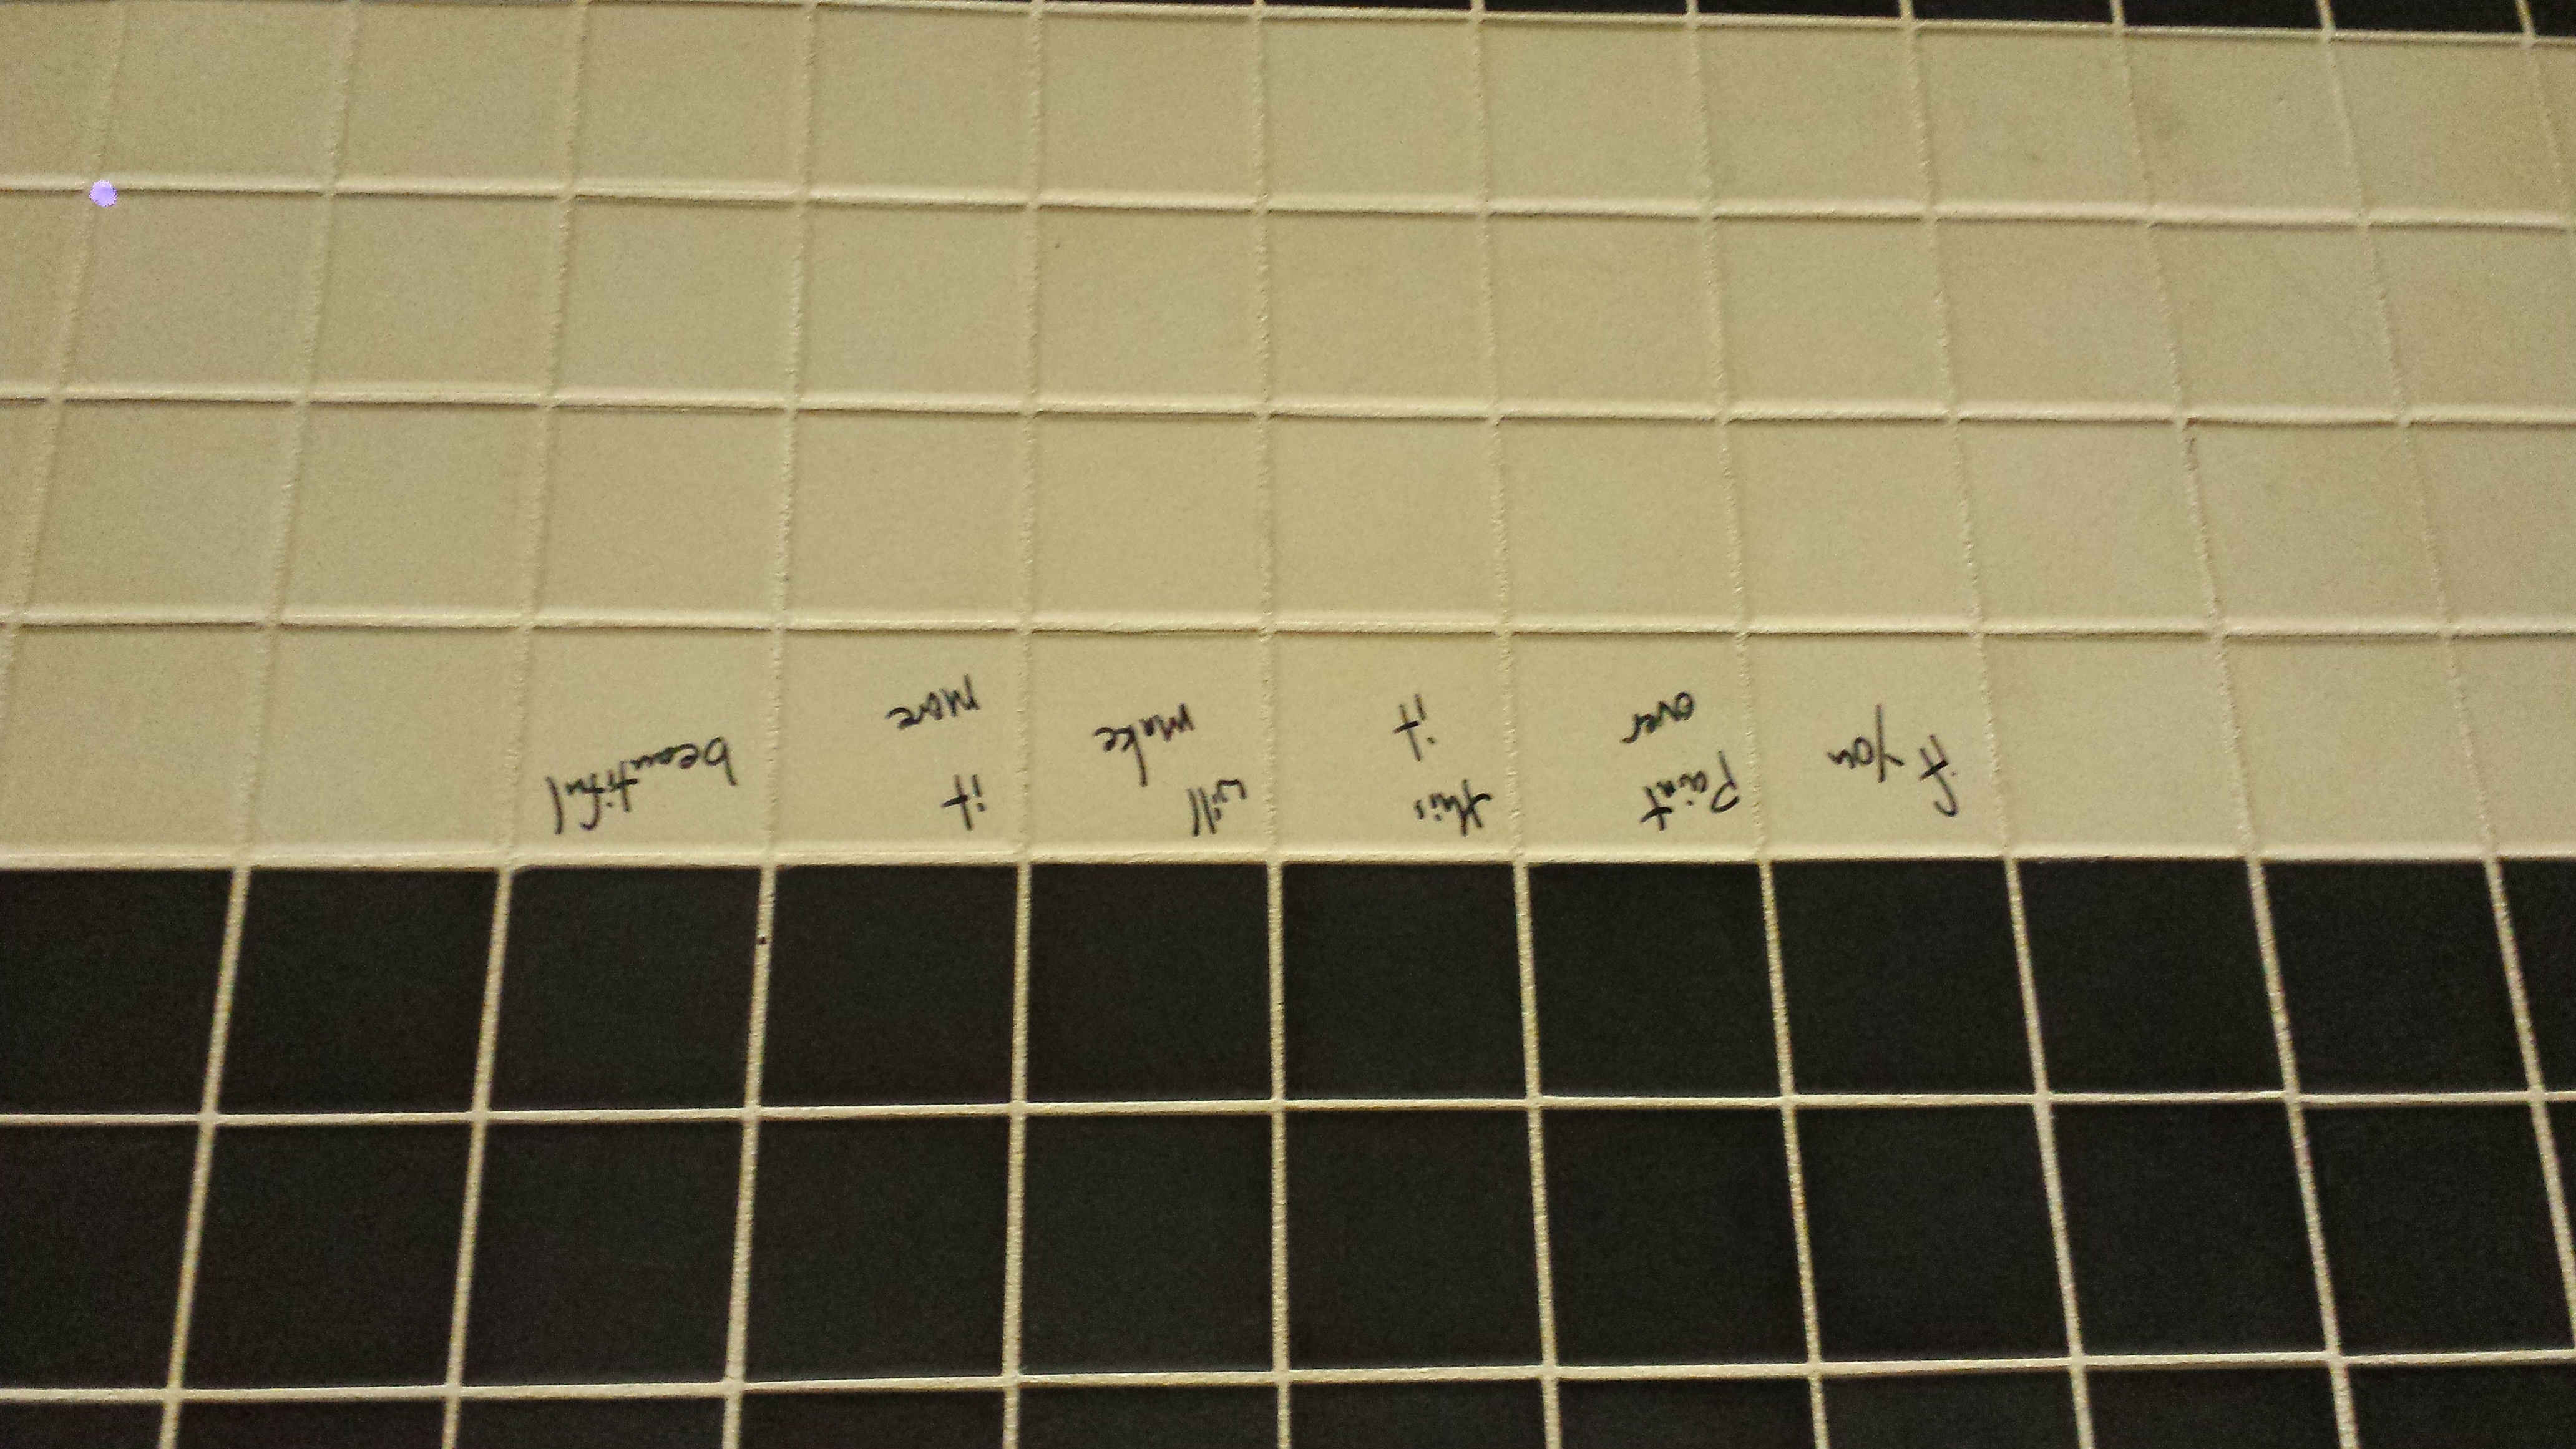 if you Paint over this it will make it more beautiful